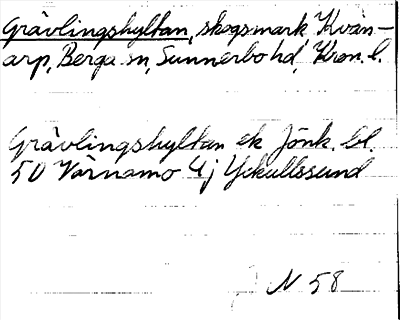 Grävlingshyltan, skogsmark Kvän-
arp, Berga sn, Sunnerbo hd, Kron. l.
Grävlingshyltan ek Jönk. bl.
50 Värnamo 4j Yckullssund
N 58